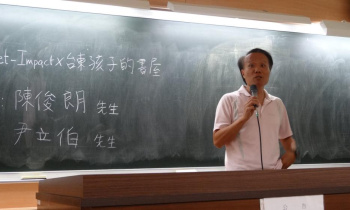 et-Impact×台東孩子的書屋
陳俊朗 先生
尹立伯 先生